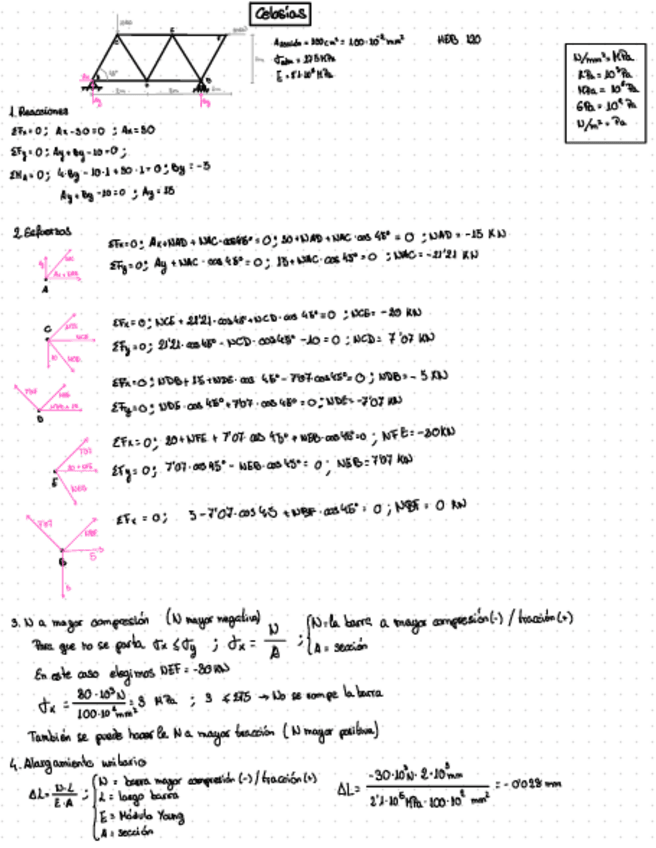 Celosías
A sección = 100 cm² = 100·10² mm² HEB 120
σadm = 275 MPa
E = 2'1·10⁵ MPa
N/mm² = MPa
KPa = 10³ Pa
MPa = 10⁶ Pa
GPa = 10⁹ Pa
N/m² = Pa
1. Reacciones
ΣFx=0; Ax-30=0; Ax=30
ΣFy=0; Ay+By-10=0;
ΣMA=0; 4·By-10·1+30·1=0; By=-5
Ay+By-10=0; Ay=15
2. Esfuerzos
ΣFx=0; Ax+NAD+NAC·cos45°=0; 30+NAD+NAC·cos 45°=0; NAD=-15 KN
ΣFy=0; Ay+NAC·cos 45°=0; 15+NAC·cos 45°=0; NAC=-21'21 KN
A
ΣFx=0; NCE+21'21·cos45°+NCD·cos 45°=0; NCE=-20 KN
ΣFy=0; 21'21·cos45°-NCD·cos45°-10=0; NCD=7'07 KN
C
ΣFx=0; NDB+15+NDE·cos 45°-7'07·cos45°=0; NDB=-5 KN
ΣFy=0; NDE·cos 45°+7'07·cos 45°=0; NDE=-7'07 KN
D
ΣFx=0; 20+NFE+7'07·cos 45°+NEB·cos45°=0; NFE=-30KN
ΣFy=0; 7'07·cos 45°-NEB·cos45°=0; NEB=7'07 KN
E
ΣFx=0; 5-7'07·cos 45+NBF·cos45°=0; NBF=0 KN
B
3. N a mayor compresión (N mayor negativa)
Para que no se parta σx ≤ σy; σx = N/A; N=la barra a mayor compresión(-)/tracción(+)
A = sección
En este caso elegimos NEF=-30KN
σx = 30·10³N / 100·10² mm² = 3 MPa; 3 ≤ 275 → No se rompe la barra
También se puede hacer la N a mayor tracción (N mayor positiva)
4. Alargamiento unitario
ΔL = N·L / E·A; N = barra mayor compresión (-)/tracción(+)
L = largo barra
E = Módulo Young
A = sección
ΔL = -30·10³N·2·10³mm / 2'1·10⁵MPa·100·10² mm² = -0'028 mm